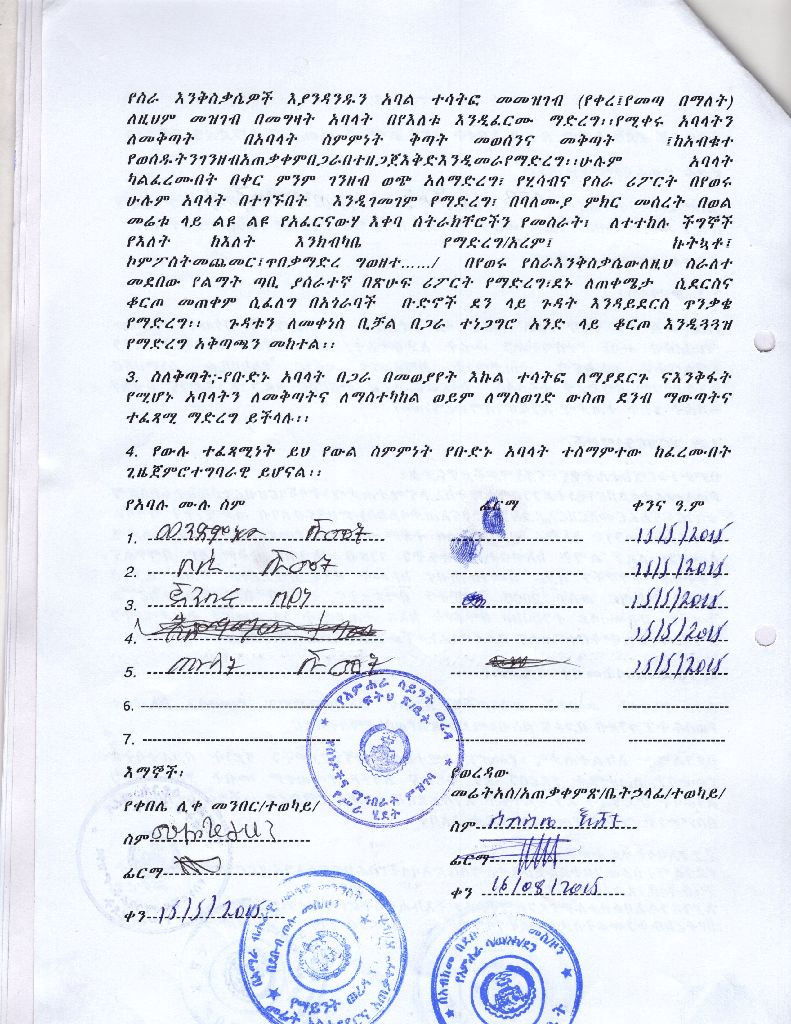 የስራ እንቅስቃሴዎች እያንዳንዱን አባል ተሳትፎ መመዝገብ (የቀረ፤የመጣ በማለት)
ለዚህም መዝገብ በመግዛት አባላት በየእለቱ እንዲፈርሙ ማድረግ፡፡የሚቀሩ አባላትን
ለመቅጣት በአባላት ስምምነት ቅጣት መወሰንና መቅጣት ፤ከአብቁተ
የወሰዱትንገንዘብአጠቃቀምበጋራበተዘጋጀእቅድእንዲመራየማድረግ፡፡ሁሉም አባላት
ካልፈረሙበት በቀር ምንም ገንዘብ ወጭ አለማድረግ፣ የሂሳብና የስራ ሪፖርት በየወሩ
ሁሉም አባላት በተገኙበት እንዲገመገም የማድረግ፣ በባለሙያ ምክር መሰረት በወል
መሬቱ ላይ ልዩ ልዩ የአፈርናውሃ እቀባ ስትራክቸሮችን የመስራት፣ ለተተከሉ ችግኞች
የእለት ከእለት እንክብካቤ የማድረግ/አረም፣ ኩትኳቶ፣
ኮምፖስትመጨመር፣ጥበቃማድረ ግወዘተ....../ በየወሩ የስራእንቅስቃሴውለዚህ ስራለተ
መደበው የልማት ጣቢ ያሰራተኛ በጽሁፍ ሪፖርት የማድረግ፡ደኑ ለጠቀሜታ ሲደርስና
ቆርጦ መጠቀም ሲፈልግ በአጎራባች ቡድኖች ደን ላይ ጉዳት እንዳይደርስ ጥንቃቄ
የማድረግ፡፡ ጉዳቱን ለመቀነስ ቢቻል በጋራ ተነጋግሮ አንድ ላይ ቆርጦ እንዲጓጓዝ
የማድረግ አቅጣጫን መከተል፡፡
3. ስለቅጣት፤-የቡድኑ አባላት በጋራ በመወያየት እኩል ተሳትፎ ለማያደርጉ ናእንቅፋት
የሚሆኑ አባላትን ለመቅጣትና ለማስተካከል ወይም ለማስወገድ ውስጠ ደንብ ማውጣትና
ተፈጻሚ ማድረግ ይችላሉ፡፡
4. የውሉ ተፈጻሚነት ይህ የውል ስምምነት የቡድኑ አባላት ተስማምተው ከፈረሙበት
ጊዜጀምሮተግባራዊ ይሆናል፡፡
የአባሉ ሙሉ ስም ፊርማ ቀንና ዓ.ም
1. ወንድምነው 15/5/2015
2. 15/5/2015
3. 15/5/2015
4. 15/5/2015
5. ሙሉጎ 15/5/2015
6.
7.
የአምሐራ ሳይንት ወረዳ
ፍትህ ጽ/ቤት
እማኞች፡
የቀበሌ ሊቀ መንበር/ተወካይ/
ስም
ፊርማ
ቀን 15/5/2015
የወረዳው
መሬትአስ/አጠቃቀምጽ/ቤትኃላፊ/ተወካይ/
ስም
ፊርማ
ቀን 16/08/2015